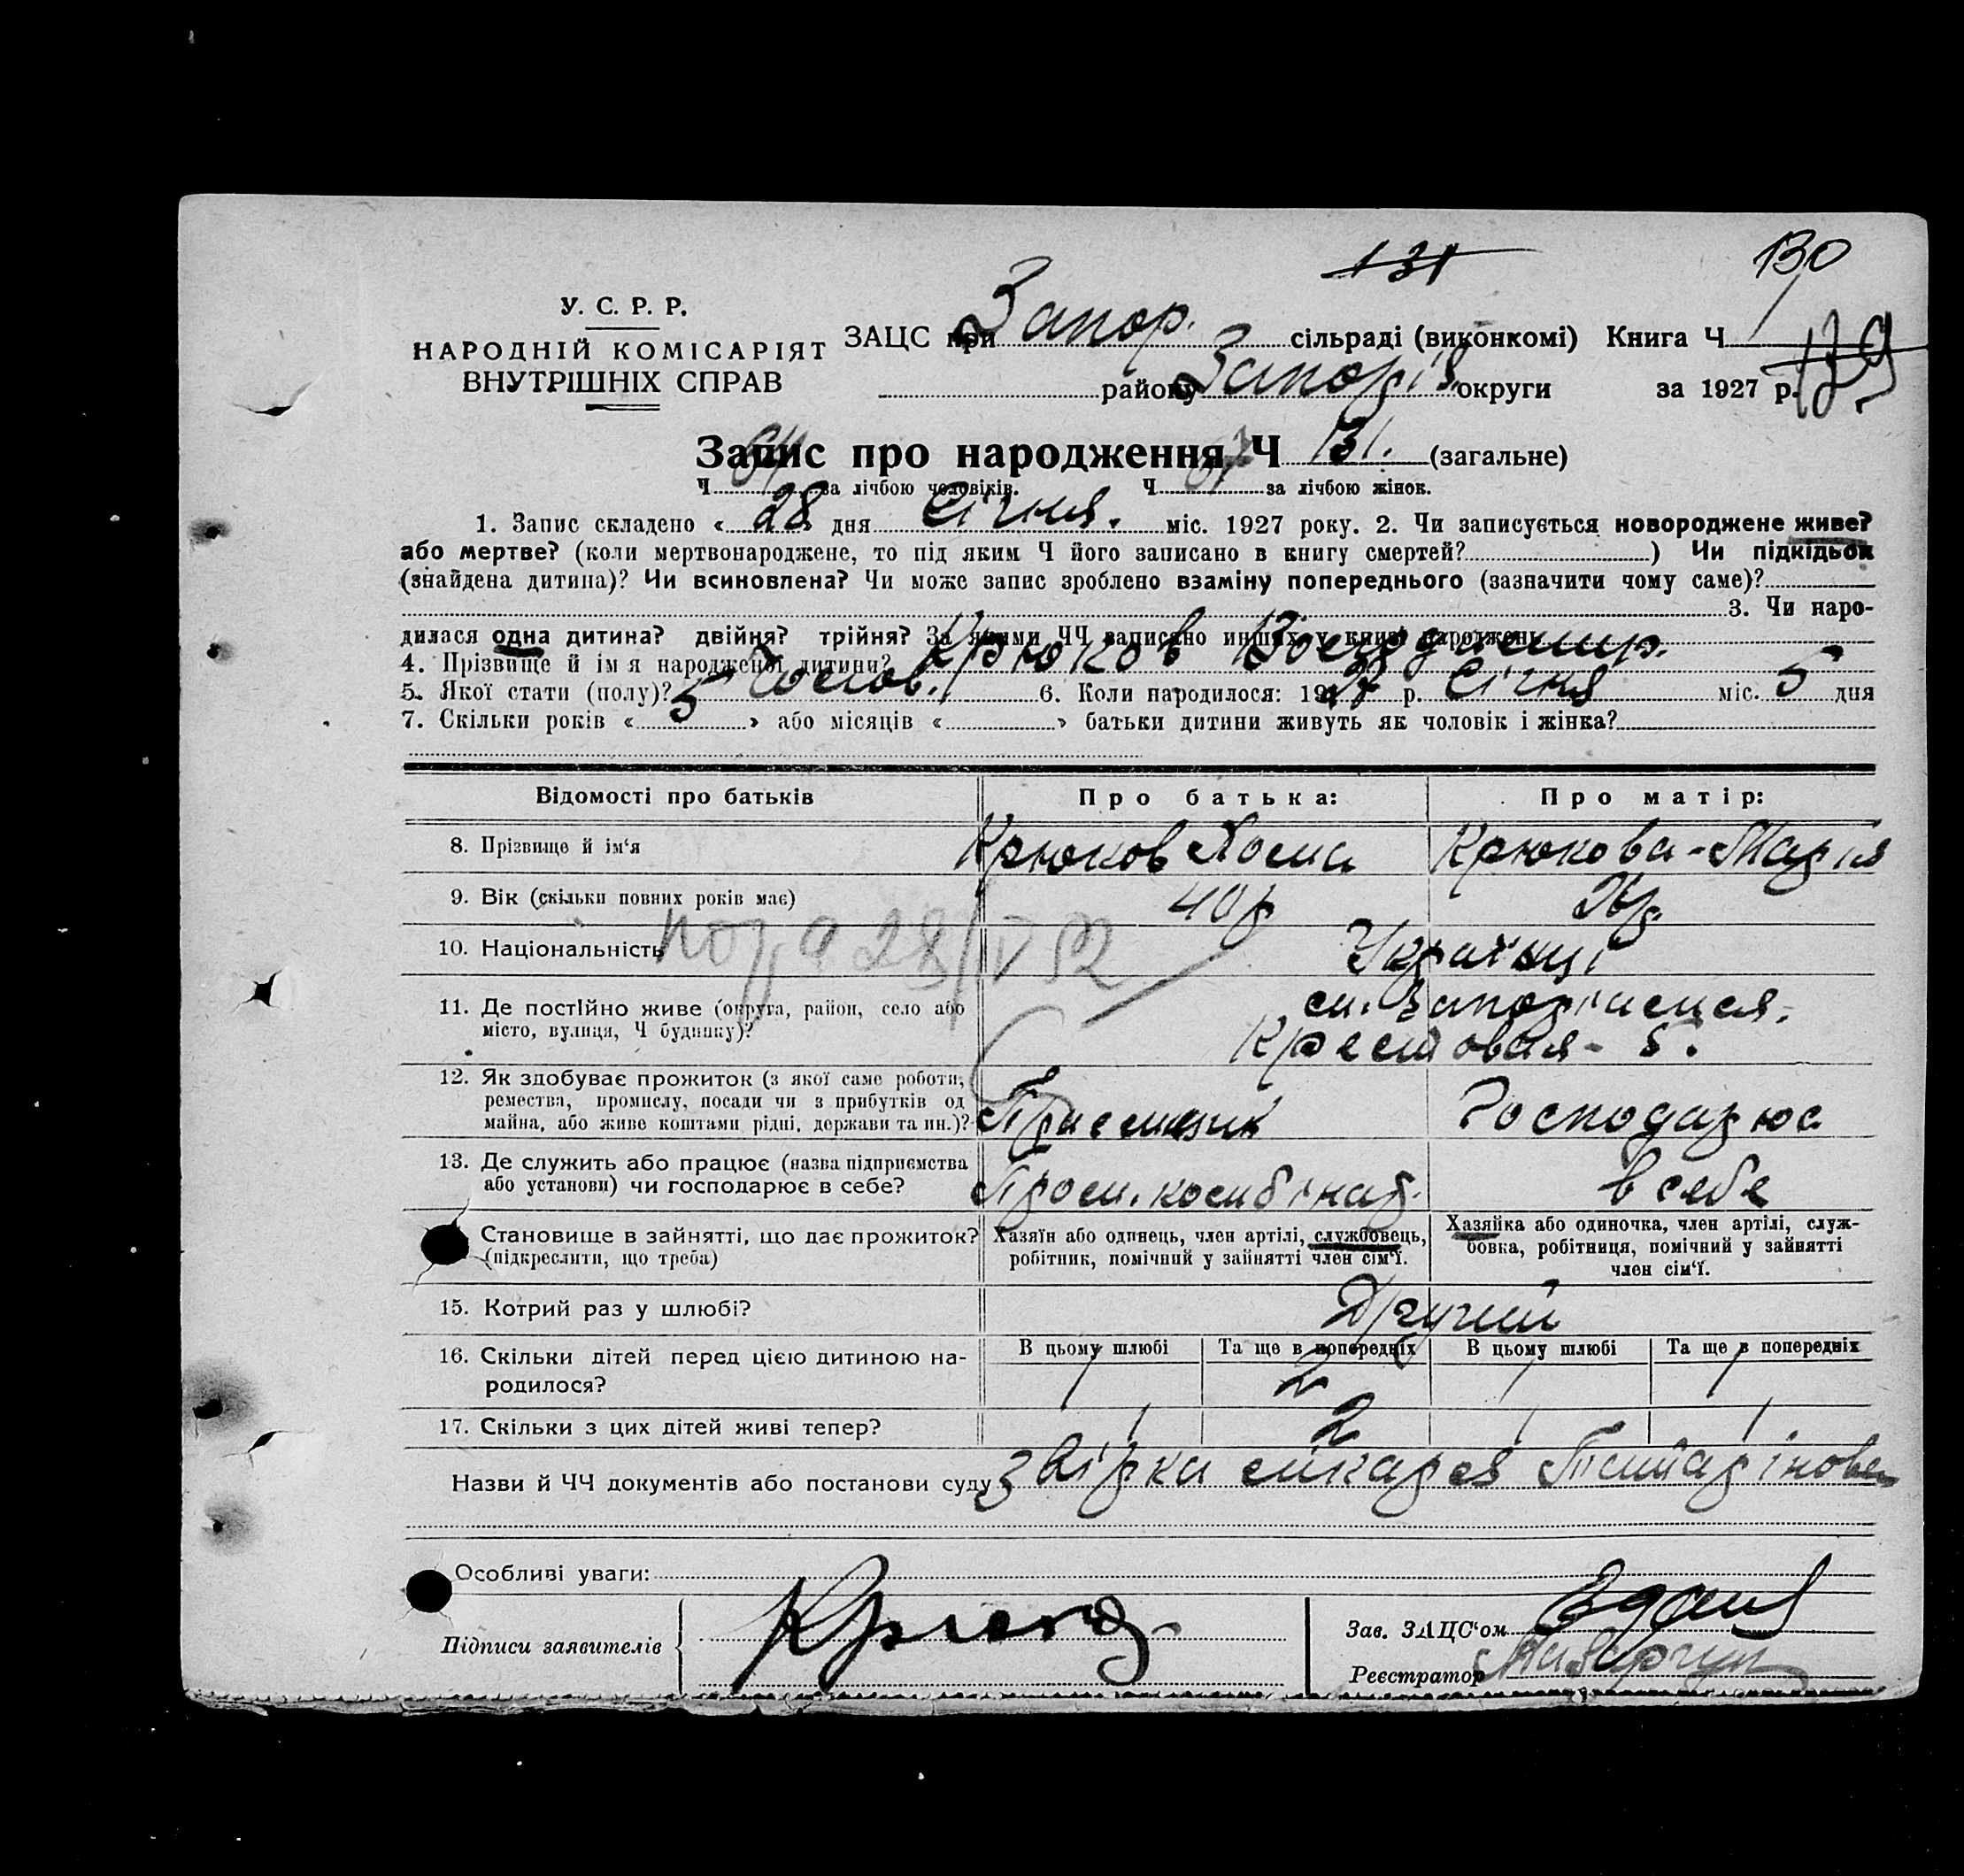 131
130
У. С. Р. Р.
НАРОДНІЙ КОМІСАРІЯТ
ВНУТРІШНІХ СПРАВ
ЗАЦС при Запор. сільраді (виконкомі) Книга Ч 1
129
району Запоріз. округи за 1927 р.
Запис про народження Ч 131. (загальне)
Ч 64 за лічбою чоловіків. Ч 67 за лічбою жінок.
1. Запис складено « 28 дня Січня. міс. 1927 року. 2. Чи записується новороджене живе?
або мертве? (коли мертвонароджене, то під яким Ч його записано в книгу смертей? ) Чи підкідьок
(знайдена дитина)? Чи всиновлена? Чи може запис зроблено взаміну попереднього (зазначити чому саме)?
3. Чи наро-
дилася одна дитина? двійня? трійня? За якими ЧЧ записано инших у книзі народжень
4. Прізвище й ім'я народженої дитини? Крюков Володимир.
5. Якої стати (полу)? Чолов. 6. Коли народилося: 1927 р. Січня міс. 5 дня
7. Скільки років « 5 » або місяців « » батьки дитини живуть як чоловік і жінка?
Відомості про батьків Про батька: Про матір:
8. Прізвище й ім'я Крюков Хома Крюкова - Марія
9. Вік (скільки повних років має) 40 р 26 р
10. Національність Українці
28/IV 52
11. Де постійно живе (округа, район, село або
місто, вулиця, Ч будинку)?
Крестовая - 5.
12. Як здобуває прожиток (з якої саме роботи,
ремества, промислу, посади чи з прибутків од
майна, або живе коштами рідні, держави та ин.)? Приемщик Господарює
13. Де служить або працює (назва підприємства
або установи) чи господарює в себе? Пром. комбінат. в себе
Становище в зайнятті, що дає прожиток?
(підкреслити, що треба)
Хазяїн або одинець, член артілі, службовець,
робітник, помічний у зайнятті член сім'ї.
Хазяйка або одиночка, член артілі, служ-
бовка, робітниця, помічний у зайнятті
член сім'ї.
15. Котрий раз у шлюбі? Другий
16. Скільки дітей перед цією дитиною на-
родилося?
В цьому шлюбі Та ще в попередніх В цьому шлюбі Та ще в попередніх
1 2 1 1
17. Скільки з цих дітей живі тепер? 1 2 1 1
Назви й ЧЧ документів або постанови суду Звірка лікаря
Особливі уваги:
Підписи заявителів
Зав. ЗАЦС'ом
Реєстратор